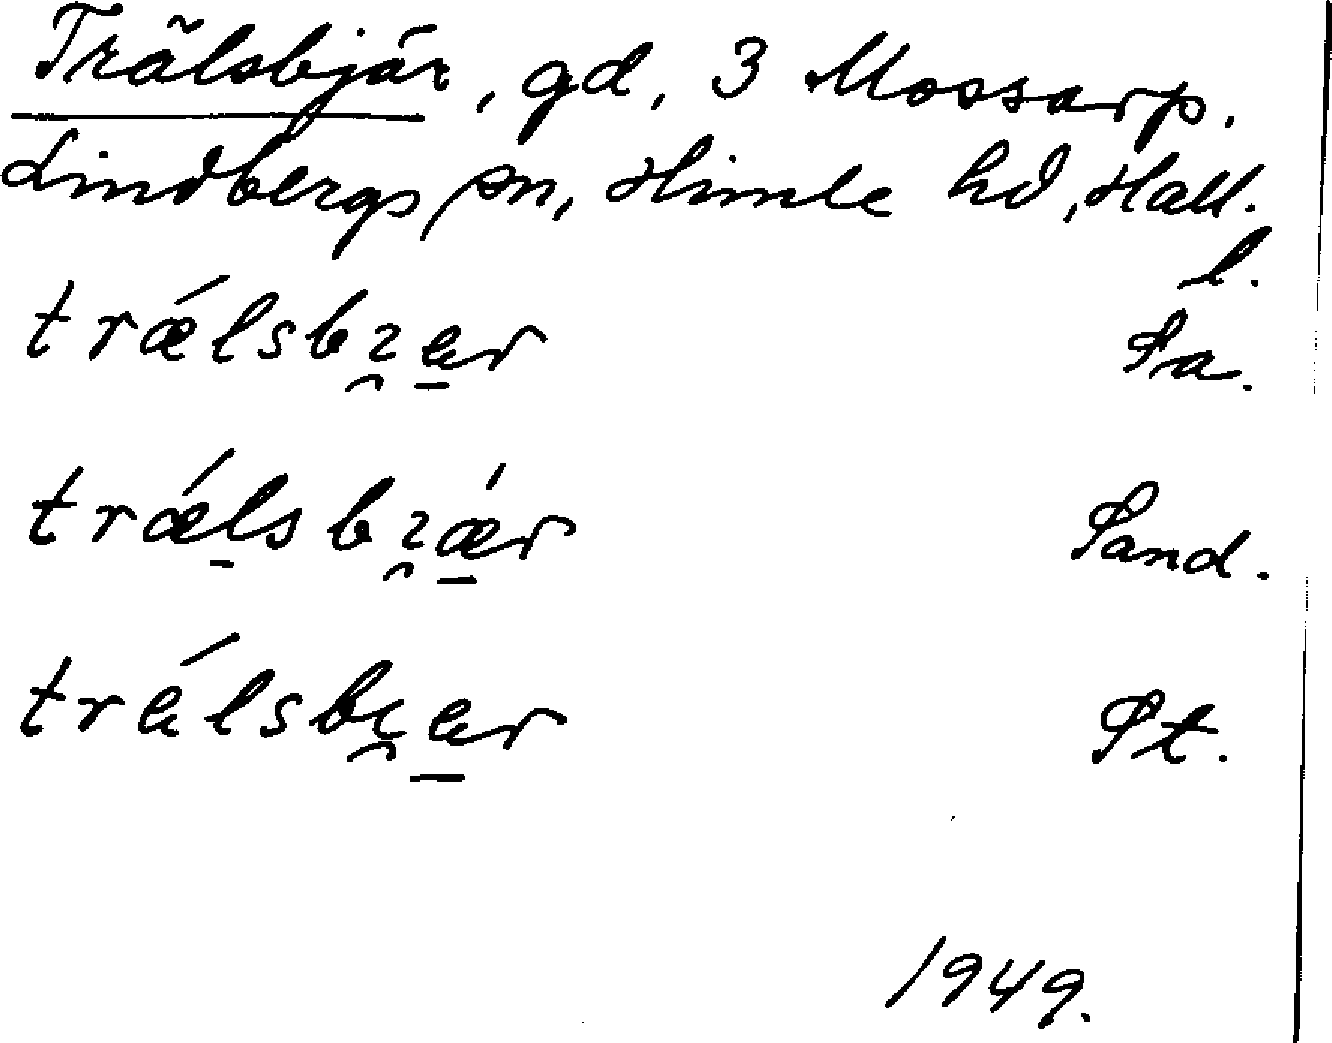 Trälsbjär, gd, 3 Mossarp.
Lindbergs sn, Himle hd, Hall.
l.
trǽlsbɿ̯ær Sa.
trǽlsbɿ̯ǽr Sand.
trǽlsbi̯ær St.
1949.